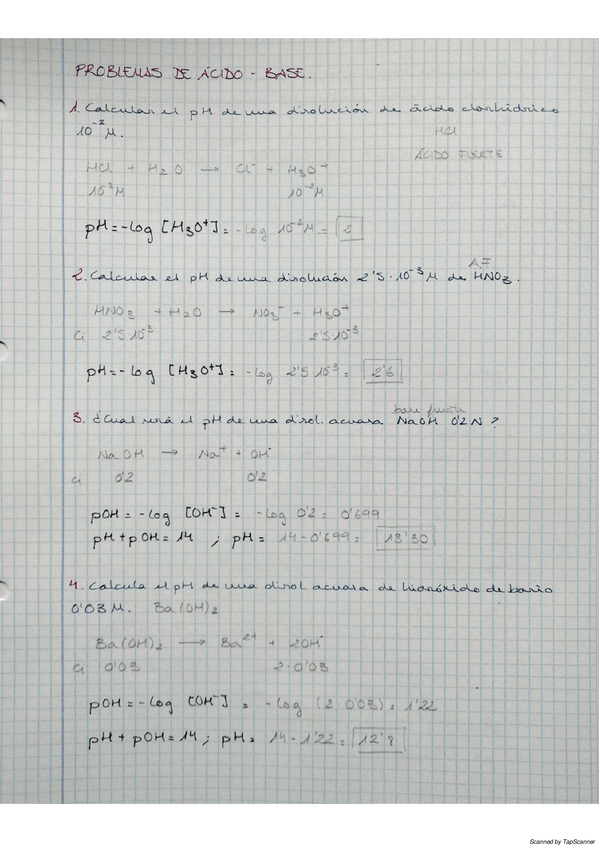 PROBLEMAS DE ÁCIDO - BASE.
1. Calcular el pH de una disolución de ácido clorhídrico
10⁻² M.
HCl
ÁCIDO FUERTE
HCl + H₂O → Cl⁻ + H₃O⁺
10⁻²M 10⁻²M
pH = -log [H₃O⁺] = -log 10⁻²M = 2
A.F
2. Calcular el pH de una disolución 2'5·10⁻³ M de HNO₃.
HNO₃ + H₂O → NO₃⁻ + H₃O⁺
Ci 2'5·10⁻³ 2'5·10⁻³
pH = -log [H₃O⁺] = -log 2'5 10⁻³ = 2'6
base fuerte
3. ¿Cual será el pH de una disol. acuosa NaOH 0'2N ?
NaOH → Na⁺ + OH⁻
Ci 0'2 0'2
pOH = -log [OH⁻] = -log 0'2 = 0'699
pH + pOH = 14 ; pH = 14 - 0'699 = 13'30
4. Calcula el pH de una disol acuosa de hidróxido de bario
0'03 M. Ba(OH)₂
Ba(OH)₂ → Ba²⁺ + 2OH⁻
Ci 0'03 2·0'03
pOH = -log [OH⁻] = -log (2·0'03) = 1'22
pH + pOH = 14 ; pH = 14 - 1'22 = 12'8
Scanned by TapScanner